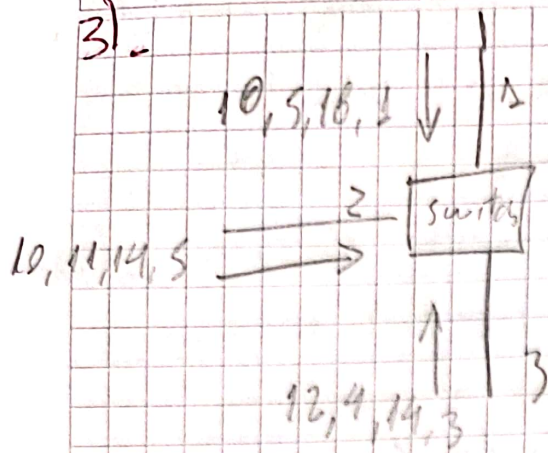 3).
10, 5, 18, 1
1
2
switch
10, 11, 14, 5
3
12, 4, 14, 3